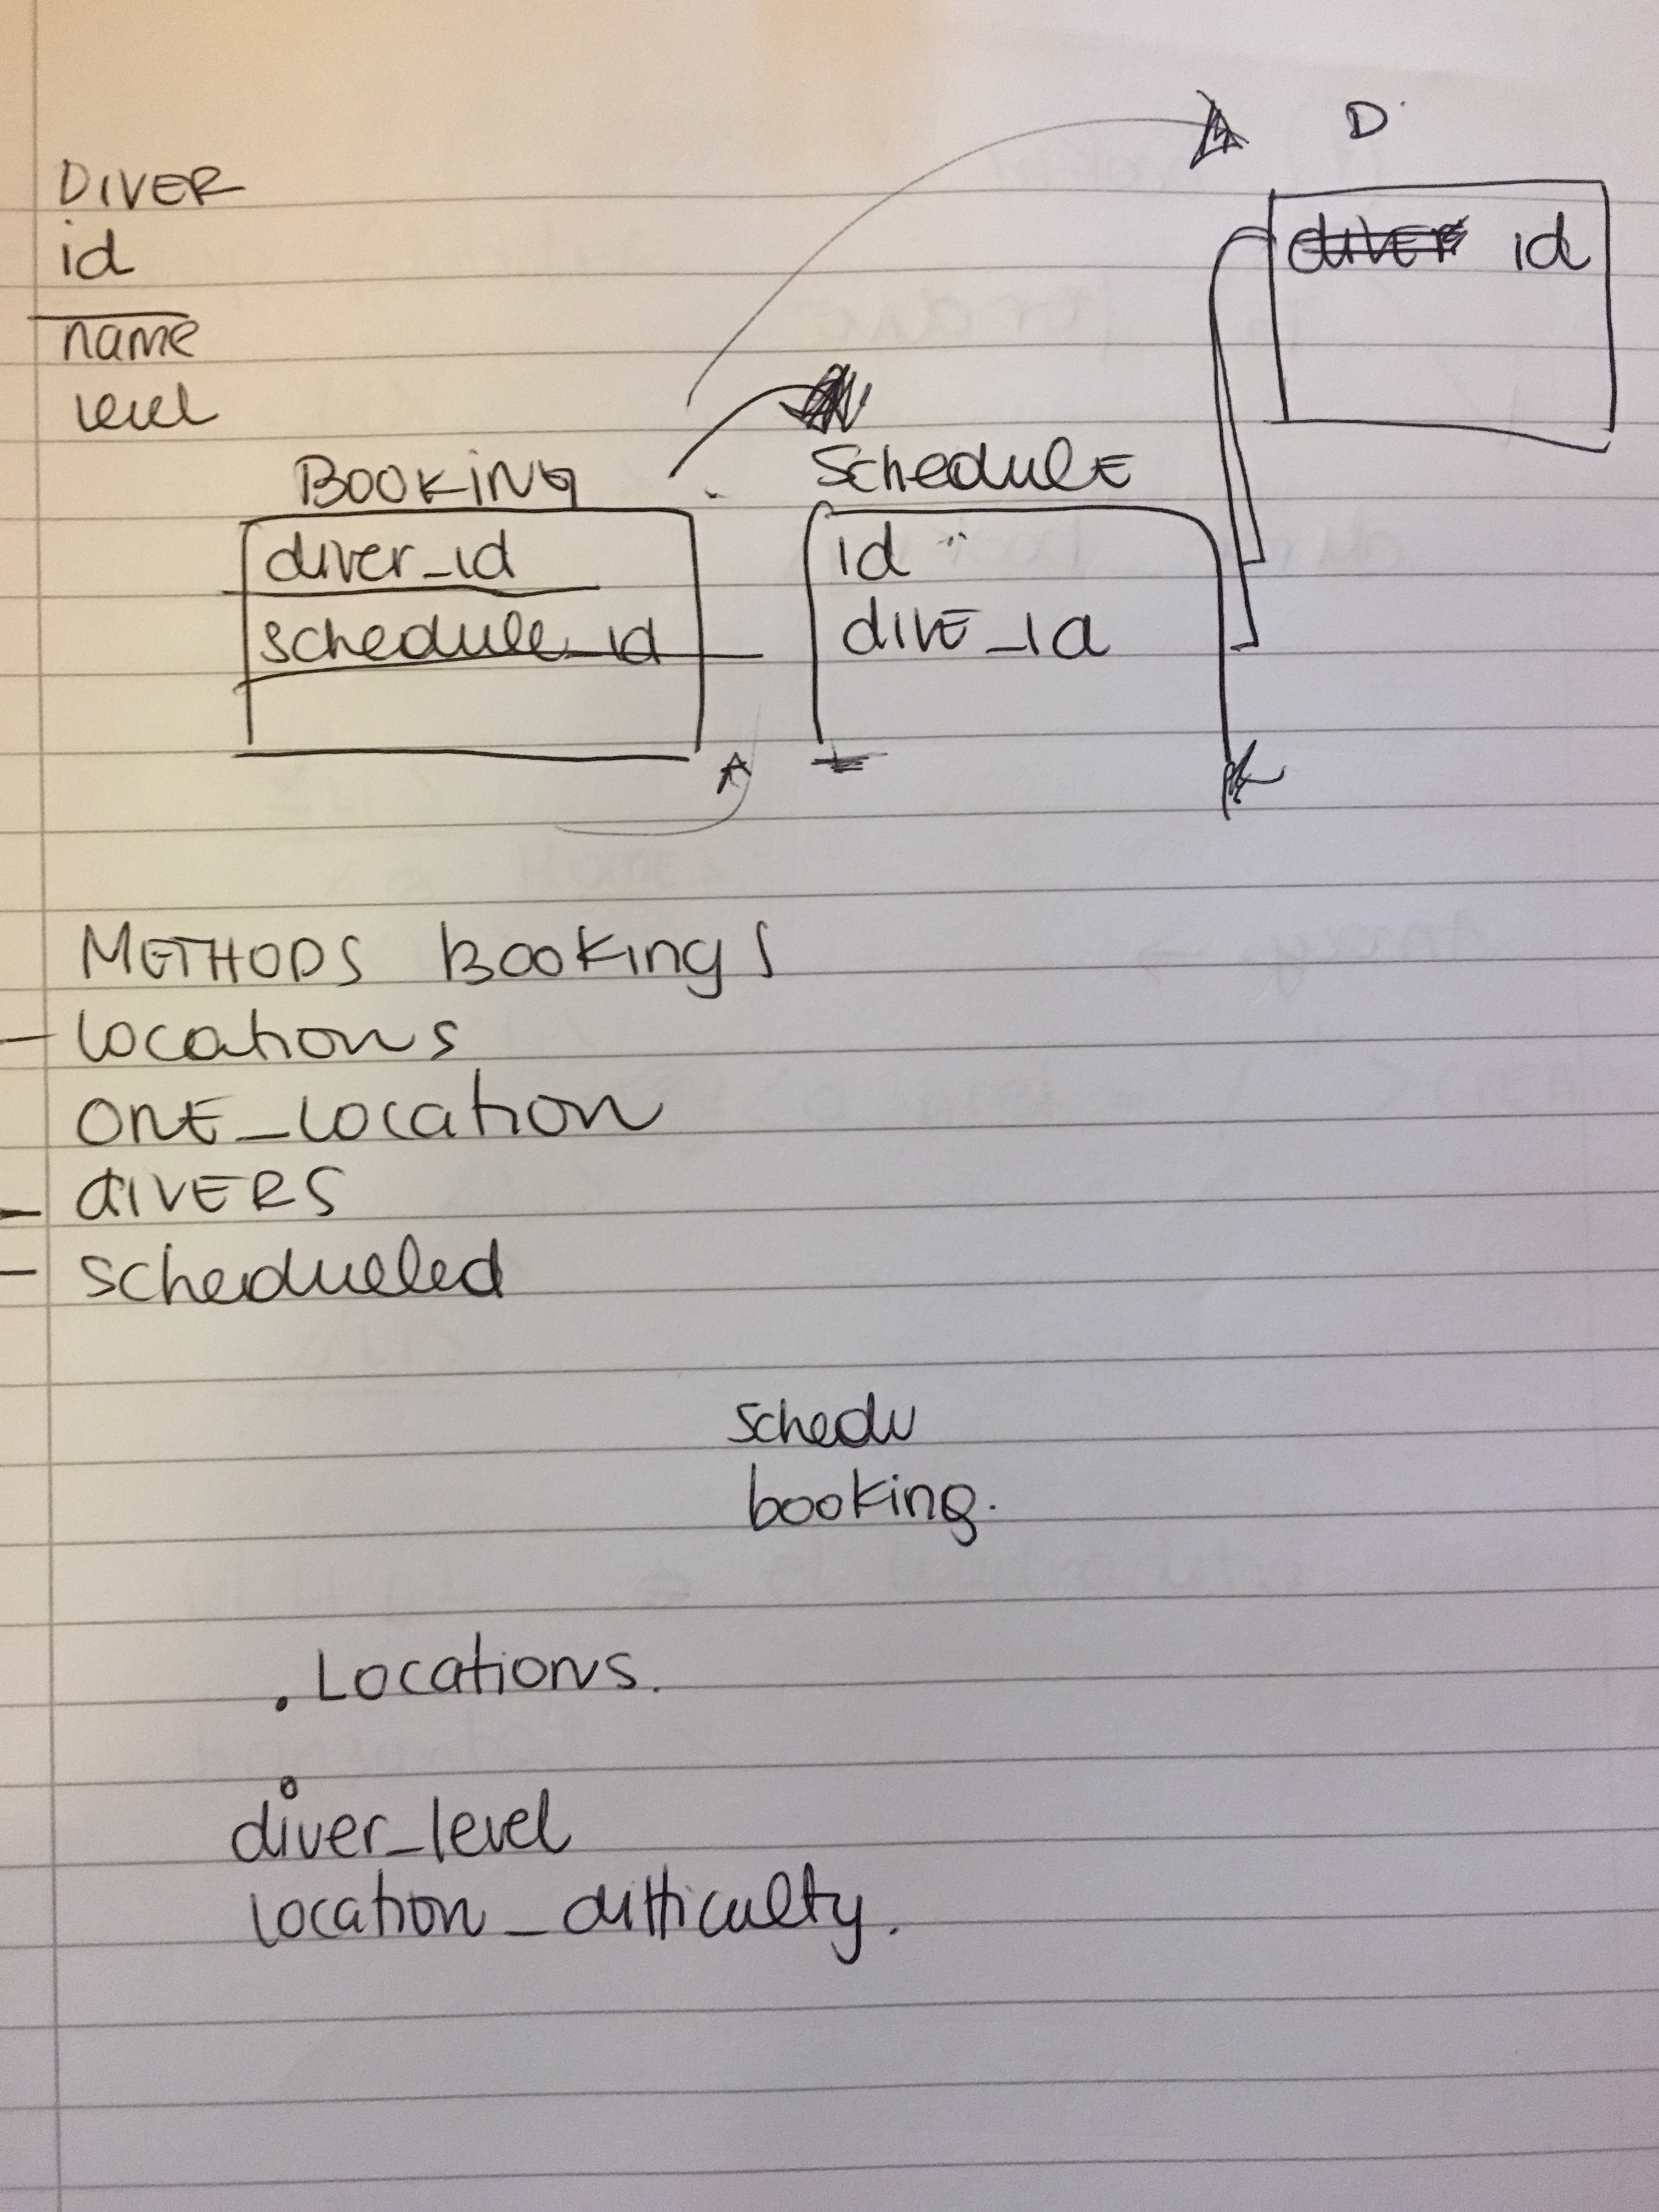 D
DIVER
id
name
level
diver id
BOOKING
Schedule
diver_id
schedule_id
id
dive_id
METHODS Bookings
- locations
one_location
- divers
- schedueled
schedu
booking.
. Locations.
diver_level
location_difficulty.